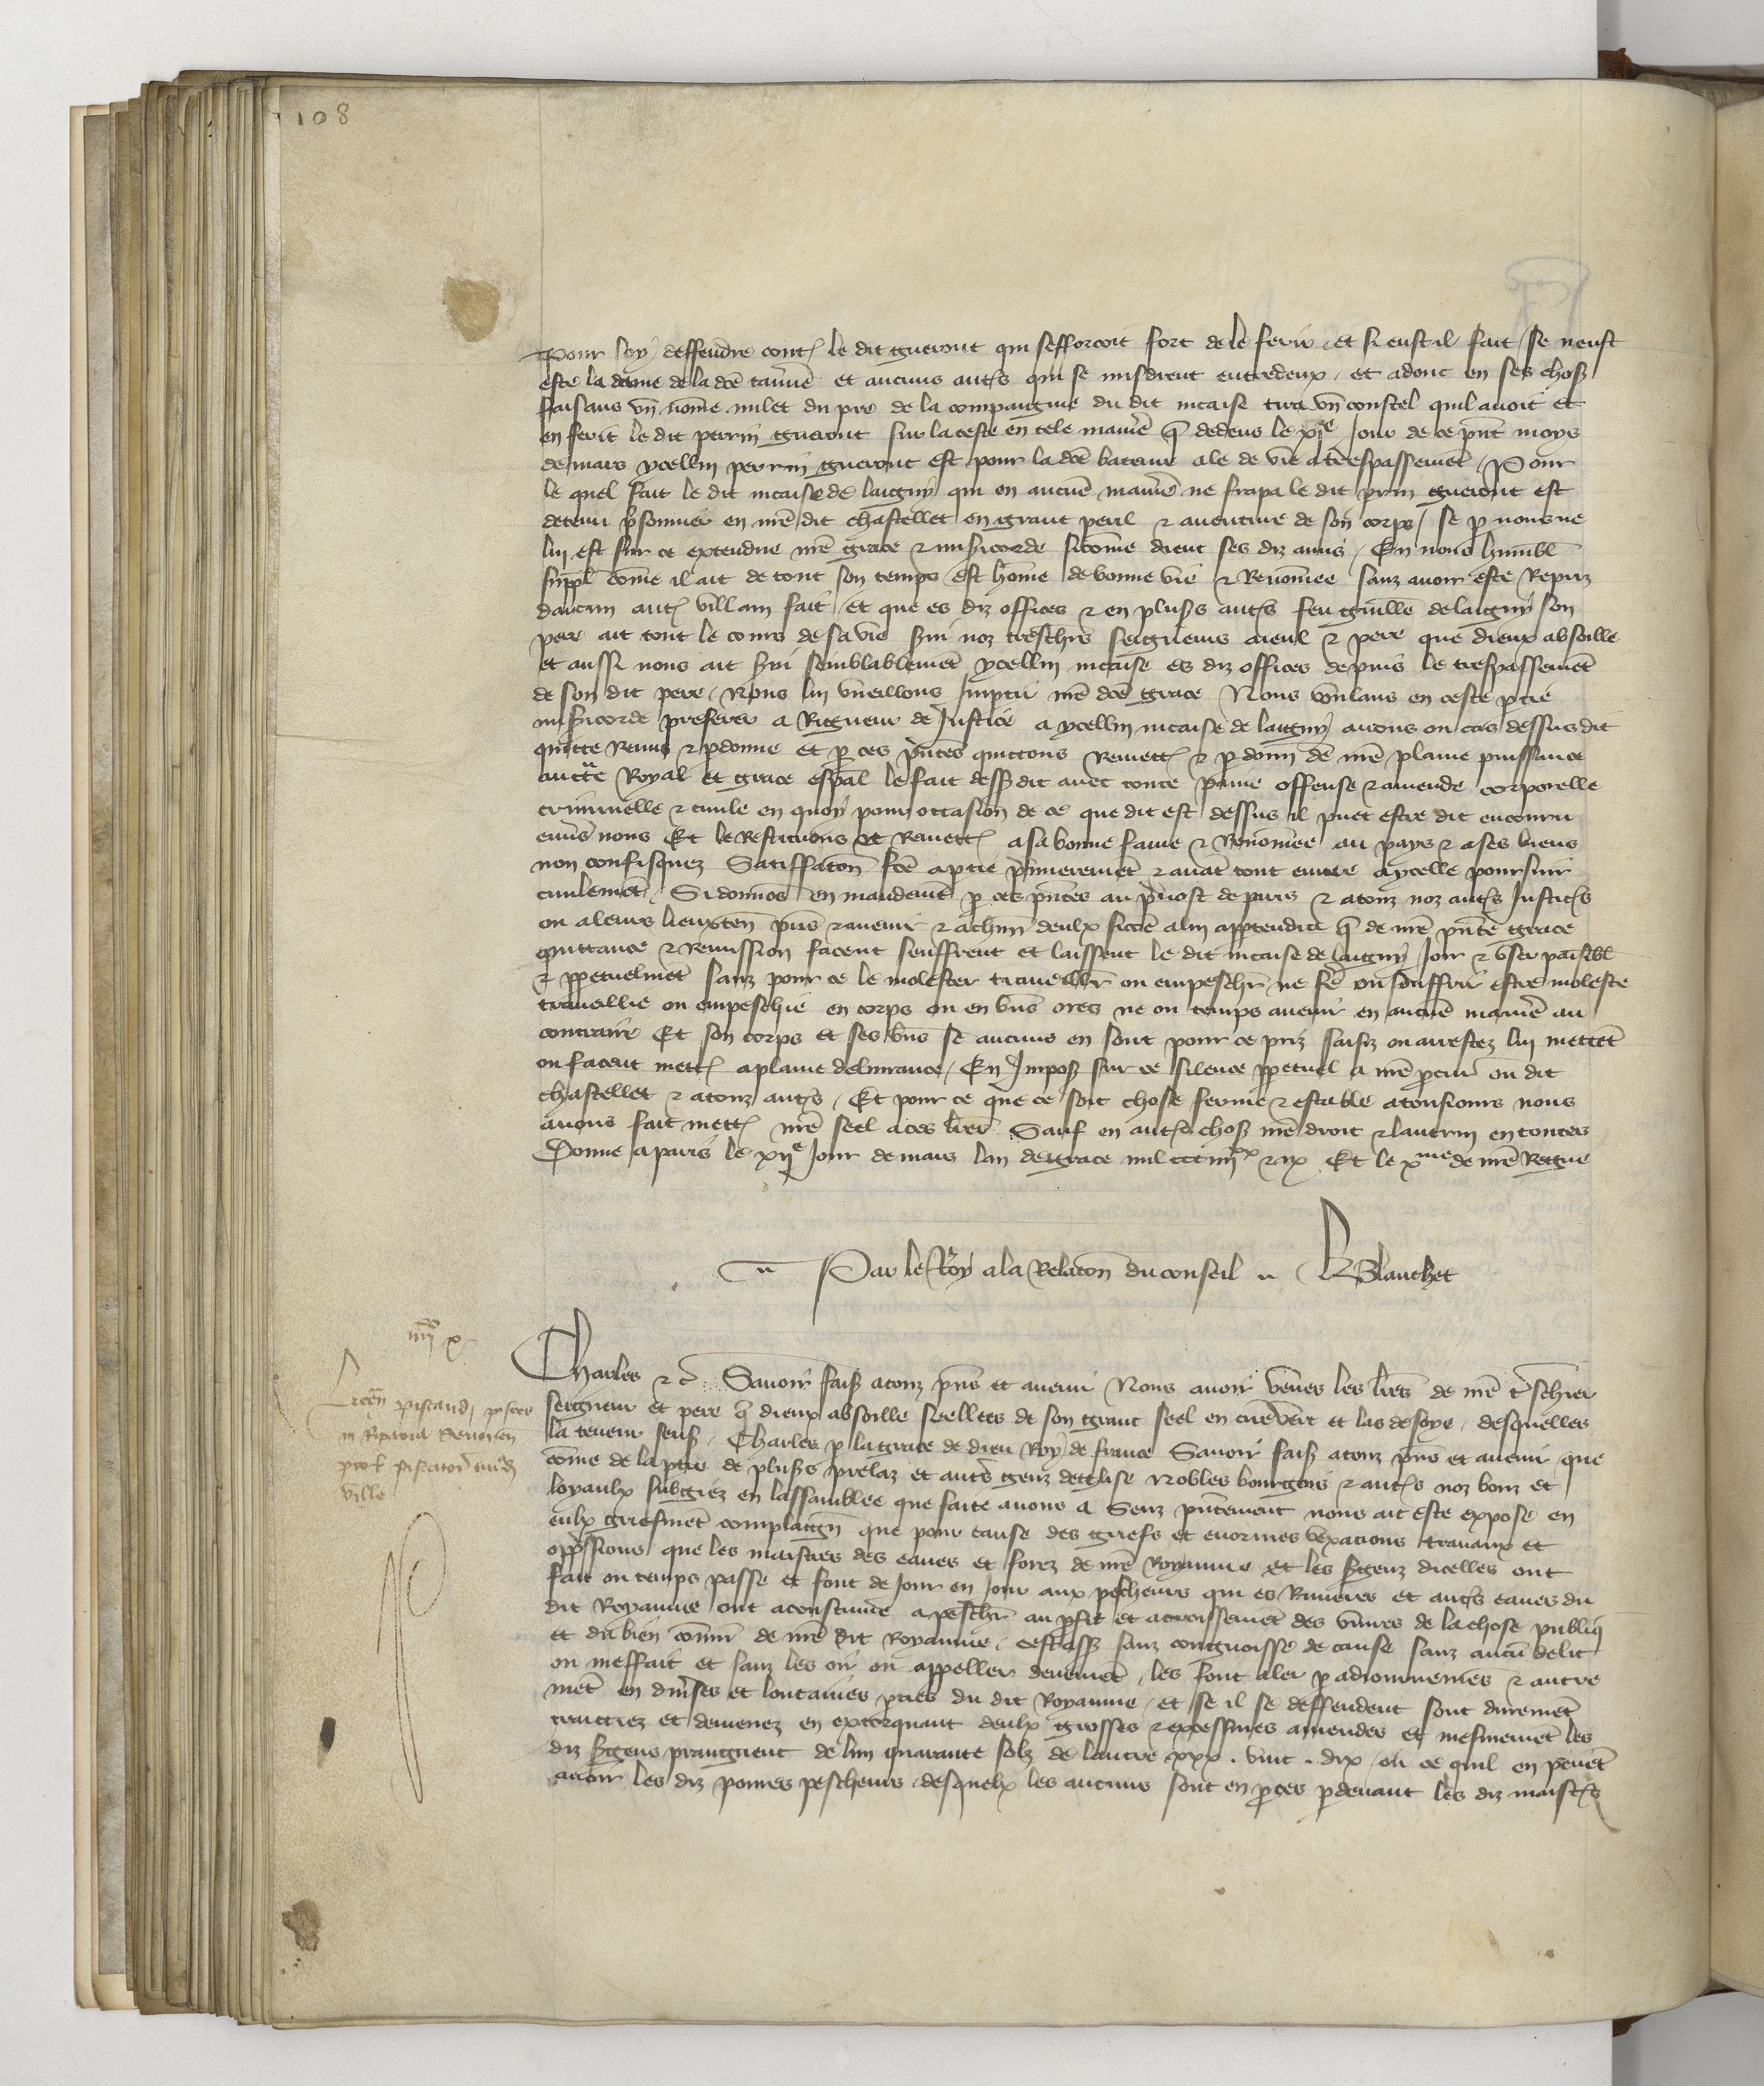 108
Pour soy deffendre contre le dit Gueront qui sefforcoit fort de le ferir et si eust il fait se neust
este la dame de la dce taverne et aucuns autres qui se misdrent entredeux et adonc en ses choses
faisans un nome Milet du pre de la compaignie du dit Nicaise tira un coustel quil avoit et
en feri le dit Perrin Gueront sur la teste en tele maniere que dedens le xie jour de ce pnt moys
de mars ycellui Perrin Gueront est pour la dce bateure ale de vie a trespassement Pour
le quel fait le dit Nicaise de Laigny qui en aucune maniere ne frapa le dit Prin Gueront est
detenu prisonnier en nre dit chastellet en grant peril et aventure de son corps se par nous ne
lui est sur ce extendue nre grace et misericorde sicome dient ses diz amis En nous humbl
suppl come il ait de tout son temps est home de bonne vie et Renomee sanz avoir este Repris
daucun autre villain fait et que es diz offices et en plusrs autres feu Guille de Laigny son
pere ait tout le cours de sa vie servi noz treschiers seigneurs aieul et pere que Dieux absoille
et aussi nous ait servi semblablement ycellui Nicaise es diz offices depuis le trespassement
de son dit pere Nous lui vueillons Impartir nre dce grace Nous voulans en ceste partie
misericorde preferer a Rigueur de Justice a ycellui Nicaise de Laigny avons ou cas dessusdit
quitte Remis et pardonne et par ces pntes quittons Remettons et pardonn de nre plaine puissance
auctte Royal et grace espal le fait dessdit avec toute paine offense et amende corporelle
criminelle et civile en quoy pour occasion de ce que dit est dessus il puet estre dit encouru
envers nous Et le Restituons et Remettons a sa bonne fame et Renomee au pays et a ses biens
non confisquez Satisfaction fce a partie premierement et avant tout euvre a ycelle poursuir
civilement Si donnons en mandement par ces pntes au prevost de Paris et a touz noz autres Justiciers
ou a leurs lieuxten pns et avenir et a chun deulx sicome a lui appartendra que de nre pnte grace
quittance et Remission facent seuffrent et laissent le dit Nicaise de Laigny joir et user paisibl
et ppetuelment sanz pour ce le molester travaillier ou empeschier ne fe ou souffrir estre moleste
travaillie ou empeschie en corps ou en biens ores ne ou temps avenir en aucune maniere au
contraire Et son corps et ses biens se aucuns en sont pour ce priz saisiz ou arrestez lui mettent
ou facent mettre a plaine delivrance En Imposant sur ce silence ppetuel a nre procur ou dit
chastellet et a touz autres Et pour ce que ce soit chose ferme et estable a tousiours nous
avons fait mettre nre seel a ces lres Sauf en autres choses nre droit et lautrui en toutes
Donne a Paris le xije jour de mars lan de grace mil ccc iiijxx et ix Et le xme de nre Regne
Par le Roy a la Relacon du conseil J Blanchet
iiijxx x
Licen piscandi pisces
in Riparia
prob piscatorib
ville
Charles etc. Savoir faisons a touz pns et avenir Nous avoir veues les lres de nre treschier
seigneur et pere que Dieux absoille seellees de son grant seel en cire vert et las de soye desquelles
la teneur sensuit Charles par la grace de Dieu Roy de France Savoir faisons a touz pns et avenir que
come de la ptie de plusrs prelaz et autres genz deglise nobles bourgois et autres noz bons et
loyaulx subgiez en lassamblee que faite avons a Senz pntement nous ait este expose en
eulx griefment complaign que pour cause des griefs et enormes vexations travaux et
oppressions que les maistres des eaues et forez de nre Royaume et les sergenz dicelles ont
fait ou temps passe et font de jour en jour aux pecheurs qui es Rivieres et autres eaues du
dit Royaume ont acoustume a peschier au profit et acroissement des vivres de la chose publiq
et du bien comun de nre dit Royaume cestass sanz congnoissce de cause sanz aucun delit
ou meffait et sanz les oir ou appeller deuement les font aler par adiornemens et autre
ment en diverses et lontaines pties du dit Royaume et se il se deffendent sont durement
traictiez et demenez en extorquant deulx grosses et excessives amendes et mesmement les
diz sergens prangnent de lun quarante solz de lautre xxx. vint. dix ou ce quil en pevent
avoir les diz povres pescheurs desquelx les aucuns sont en proces pardevant les diz maistres